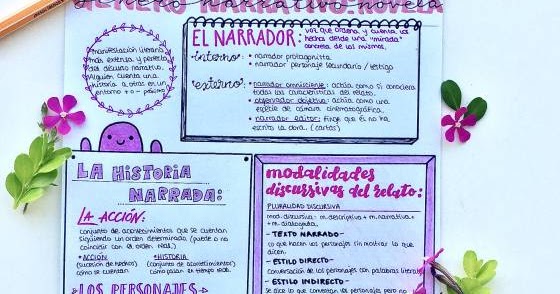 género narrativo: novela
manifestación literaria
más extensa y perfecta
del discurso narrativo.
Alguien cuenta una
historia a otras en un
entorno + o - próximo
EL NARRADOR:
voz que ordena y cuenta los
hechos desde una "mirada"
concreta de los mismos.
interno:
• narrador protagonista
• narrador personaje secundario / testigo
externo:
• narrador omnisciente: actúa como si conociera
todas las características del relato.
• observador objetivo: actúa como una
especie de cámara cinematográfica.
• narrador editor: Finge que él no ha
escrito la obra. (cartas)
LA HISTORIA
NARRADA:
LA ACCIÓN:
conjunto de acontecimientos que se cuentan
siguiendo un orden determinado (puede o no
coincidir con el orden real).
• ACCIÓN
(sucesión de hechos)
cómo se cuentan
• HISTORIA
(conjunto de acontecimientos)
cómo pasan en tiempo real.
LOS PERSONAJES
modalidades
discursivas del relato:
PLURALIDAD DISCURSIVA
mod. discursiva = m. descriptiva + m. narrativa +
+ m. dialogada.
- TEXTO NARRADO -
lo que hacen los personajes sin mostrar lo que
dicen.
- ESTILO DIRECTO -
conversación de los personajes con palabras literales
- ESTILO INDIRECTO -
se dice lo que comentan los personajes pero no